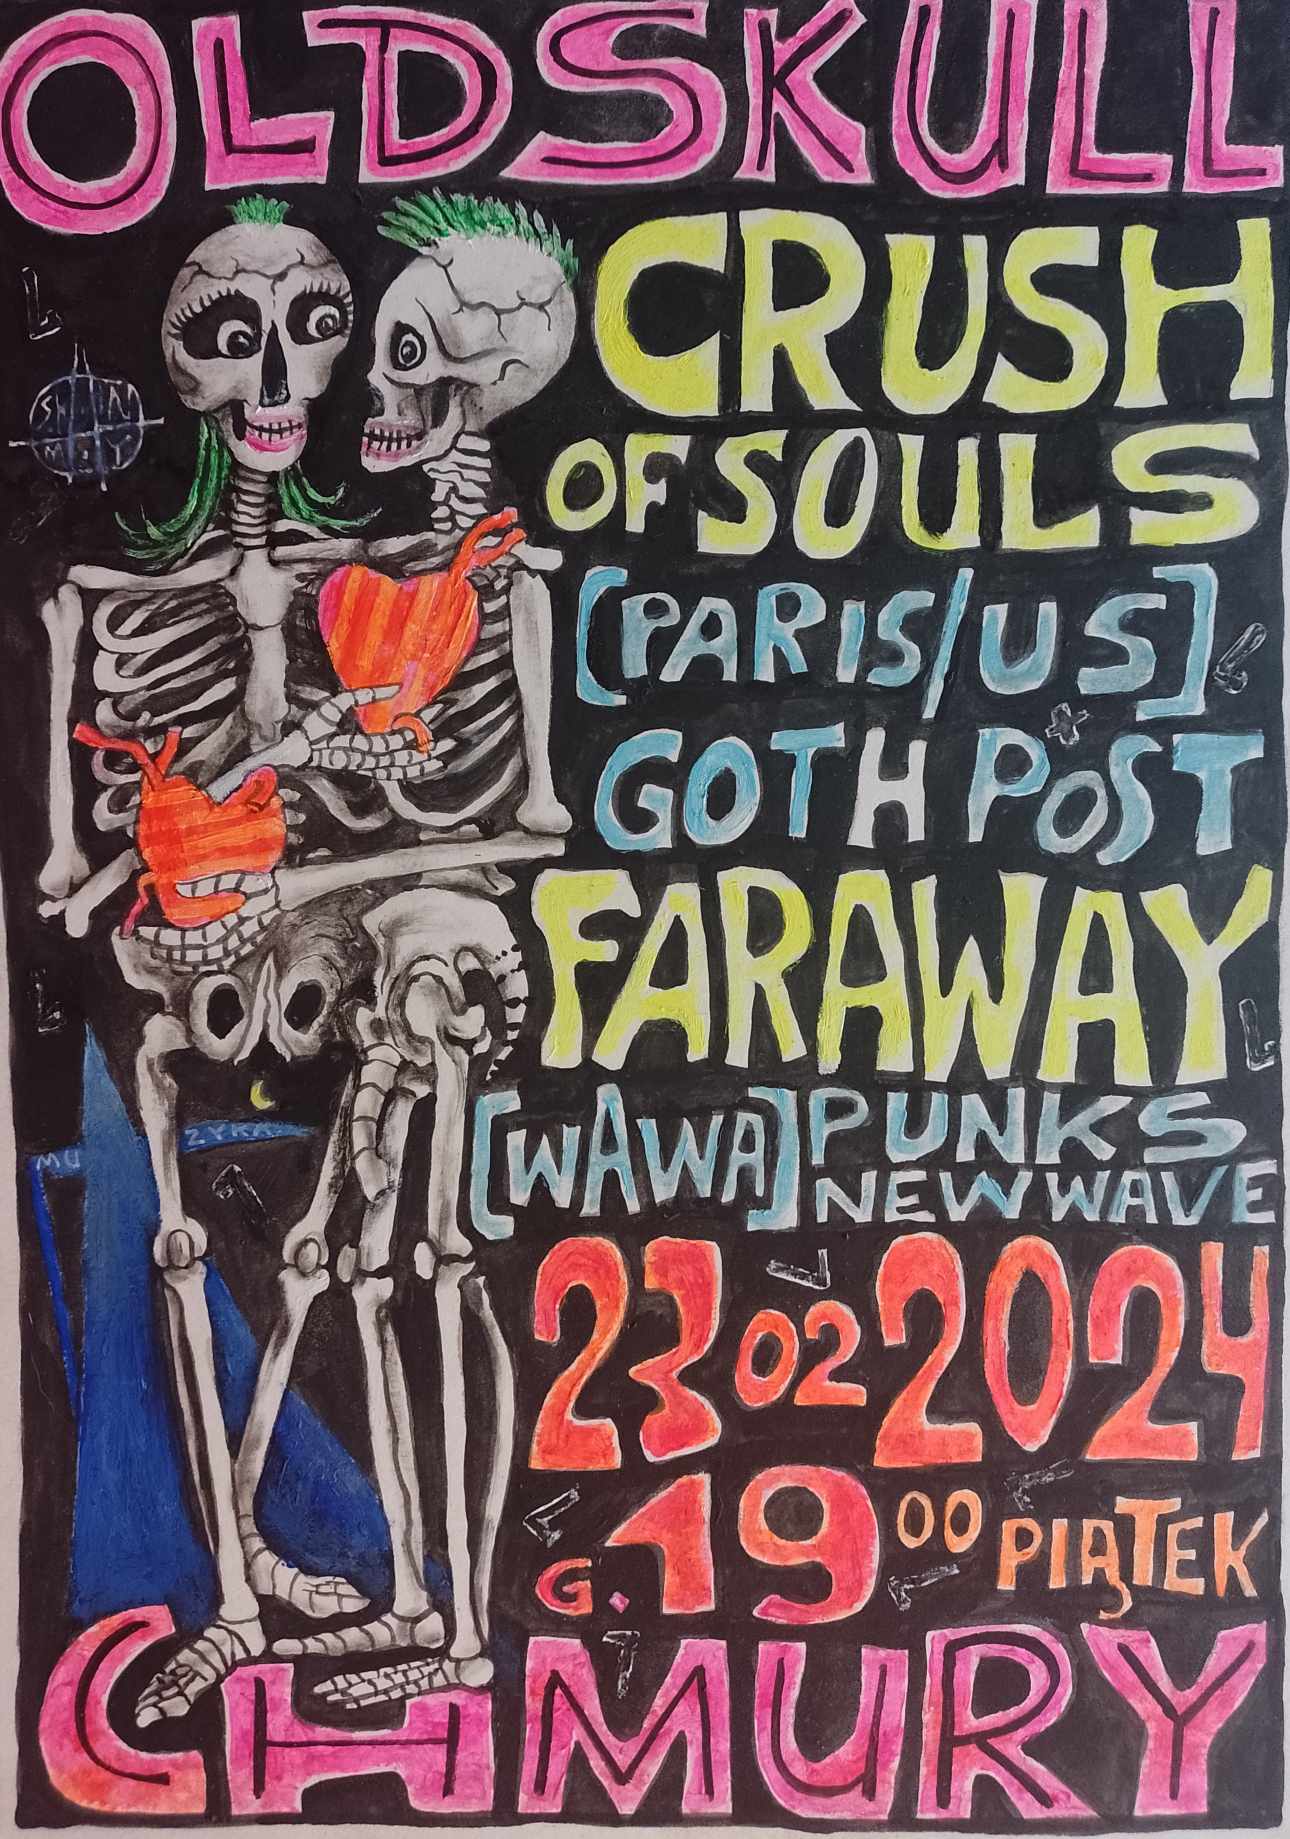 OLDSKULL
CRUSH
OF SOULS
[PARIS/US]
GOTH POST
FARAWAY
[WAWA] PUNKS
NEW WAVE
MU ZYKA
23 02 2024
G. 19 00 PIĄTEK
CHMURY